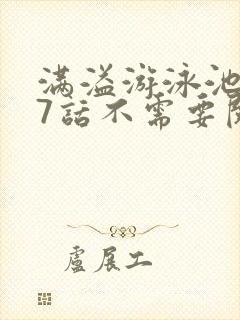 满溢游泳池
7話不需要
盧展工